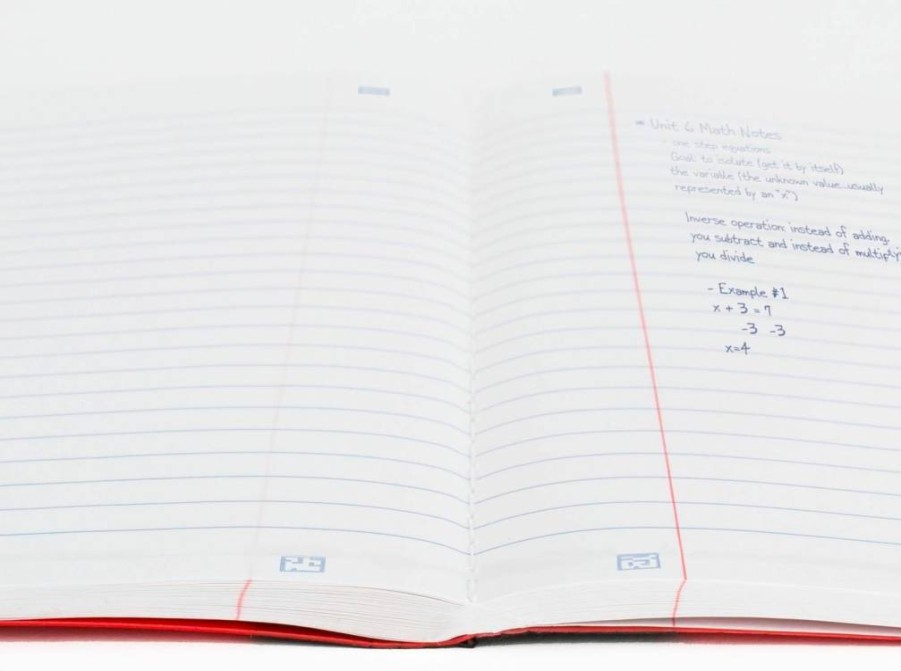 = Unit 6 Math Notes
- one step equations
Goal: to isolate (get it by itself)
the variable (the unknown value usually
represented by an "x")
Inverse operation: instead of adding,
you subtract and instead of multiply
you divide
- Example #1
x + 3 = 7
-3 -3
x=4